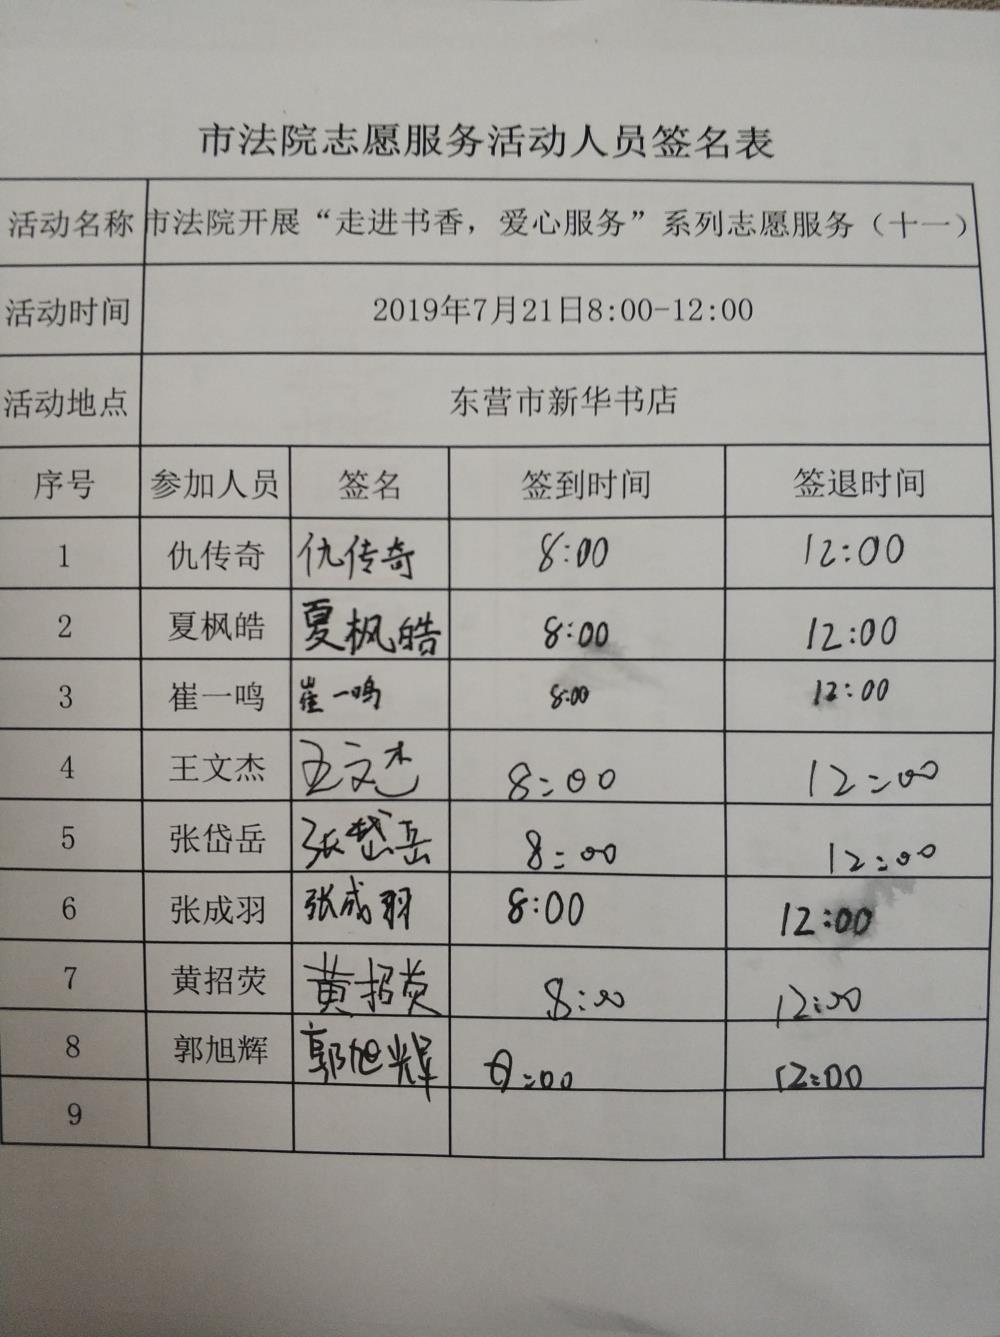 市法院志愿服务活动人员签名表
活动名称 市法院开展“走进书香，爱心服务”系列志愿服务（十一）
活动时间 2019年7月21日8:00-12:00
活动地点 东营市新华书店
序号 参加人员 签名 签到时间 签退时间
1 仇传奇 仇传奇 8:00 12:00
2 夏枫皓 夏枫皓 8:00 12:00
3 崔一鸣 崔一鸣 8:00 12:00
4 王文杰 王文杰 8:00 12:00
5 张岱岳 张岱岳 8:00 12:00
6 张成羽 张成羽 8:00 12:00
7 黄招荧 黄招荧 8:00 12:00
8 郭旭辉 郭旭辉 8:00 12:00
9